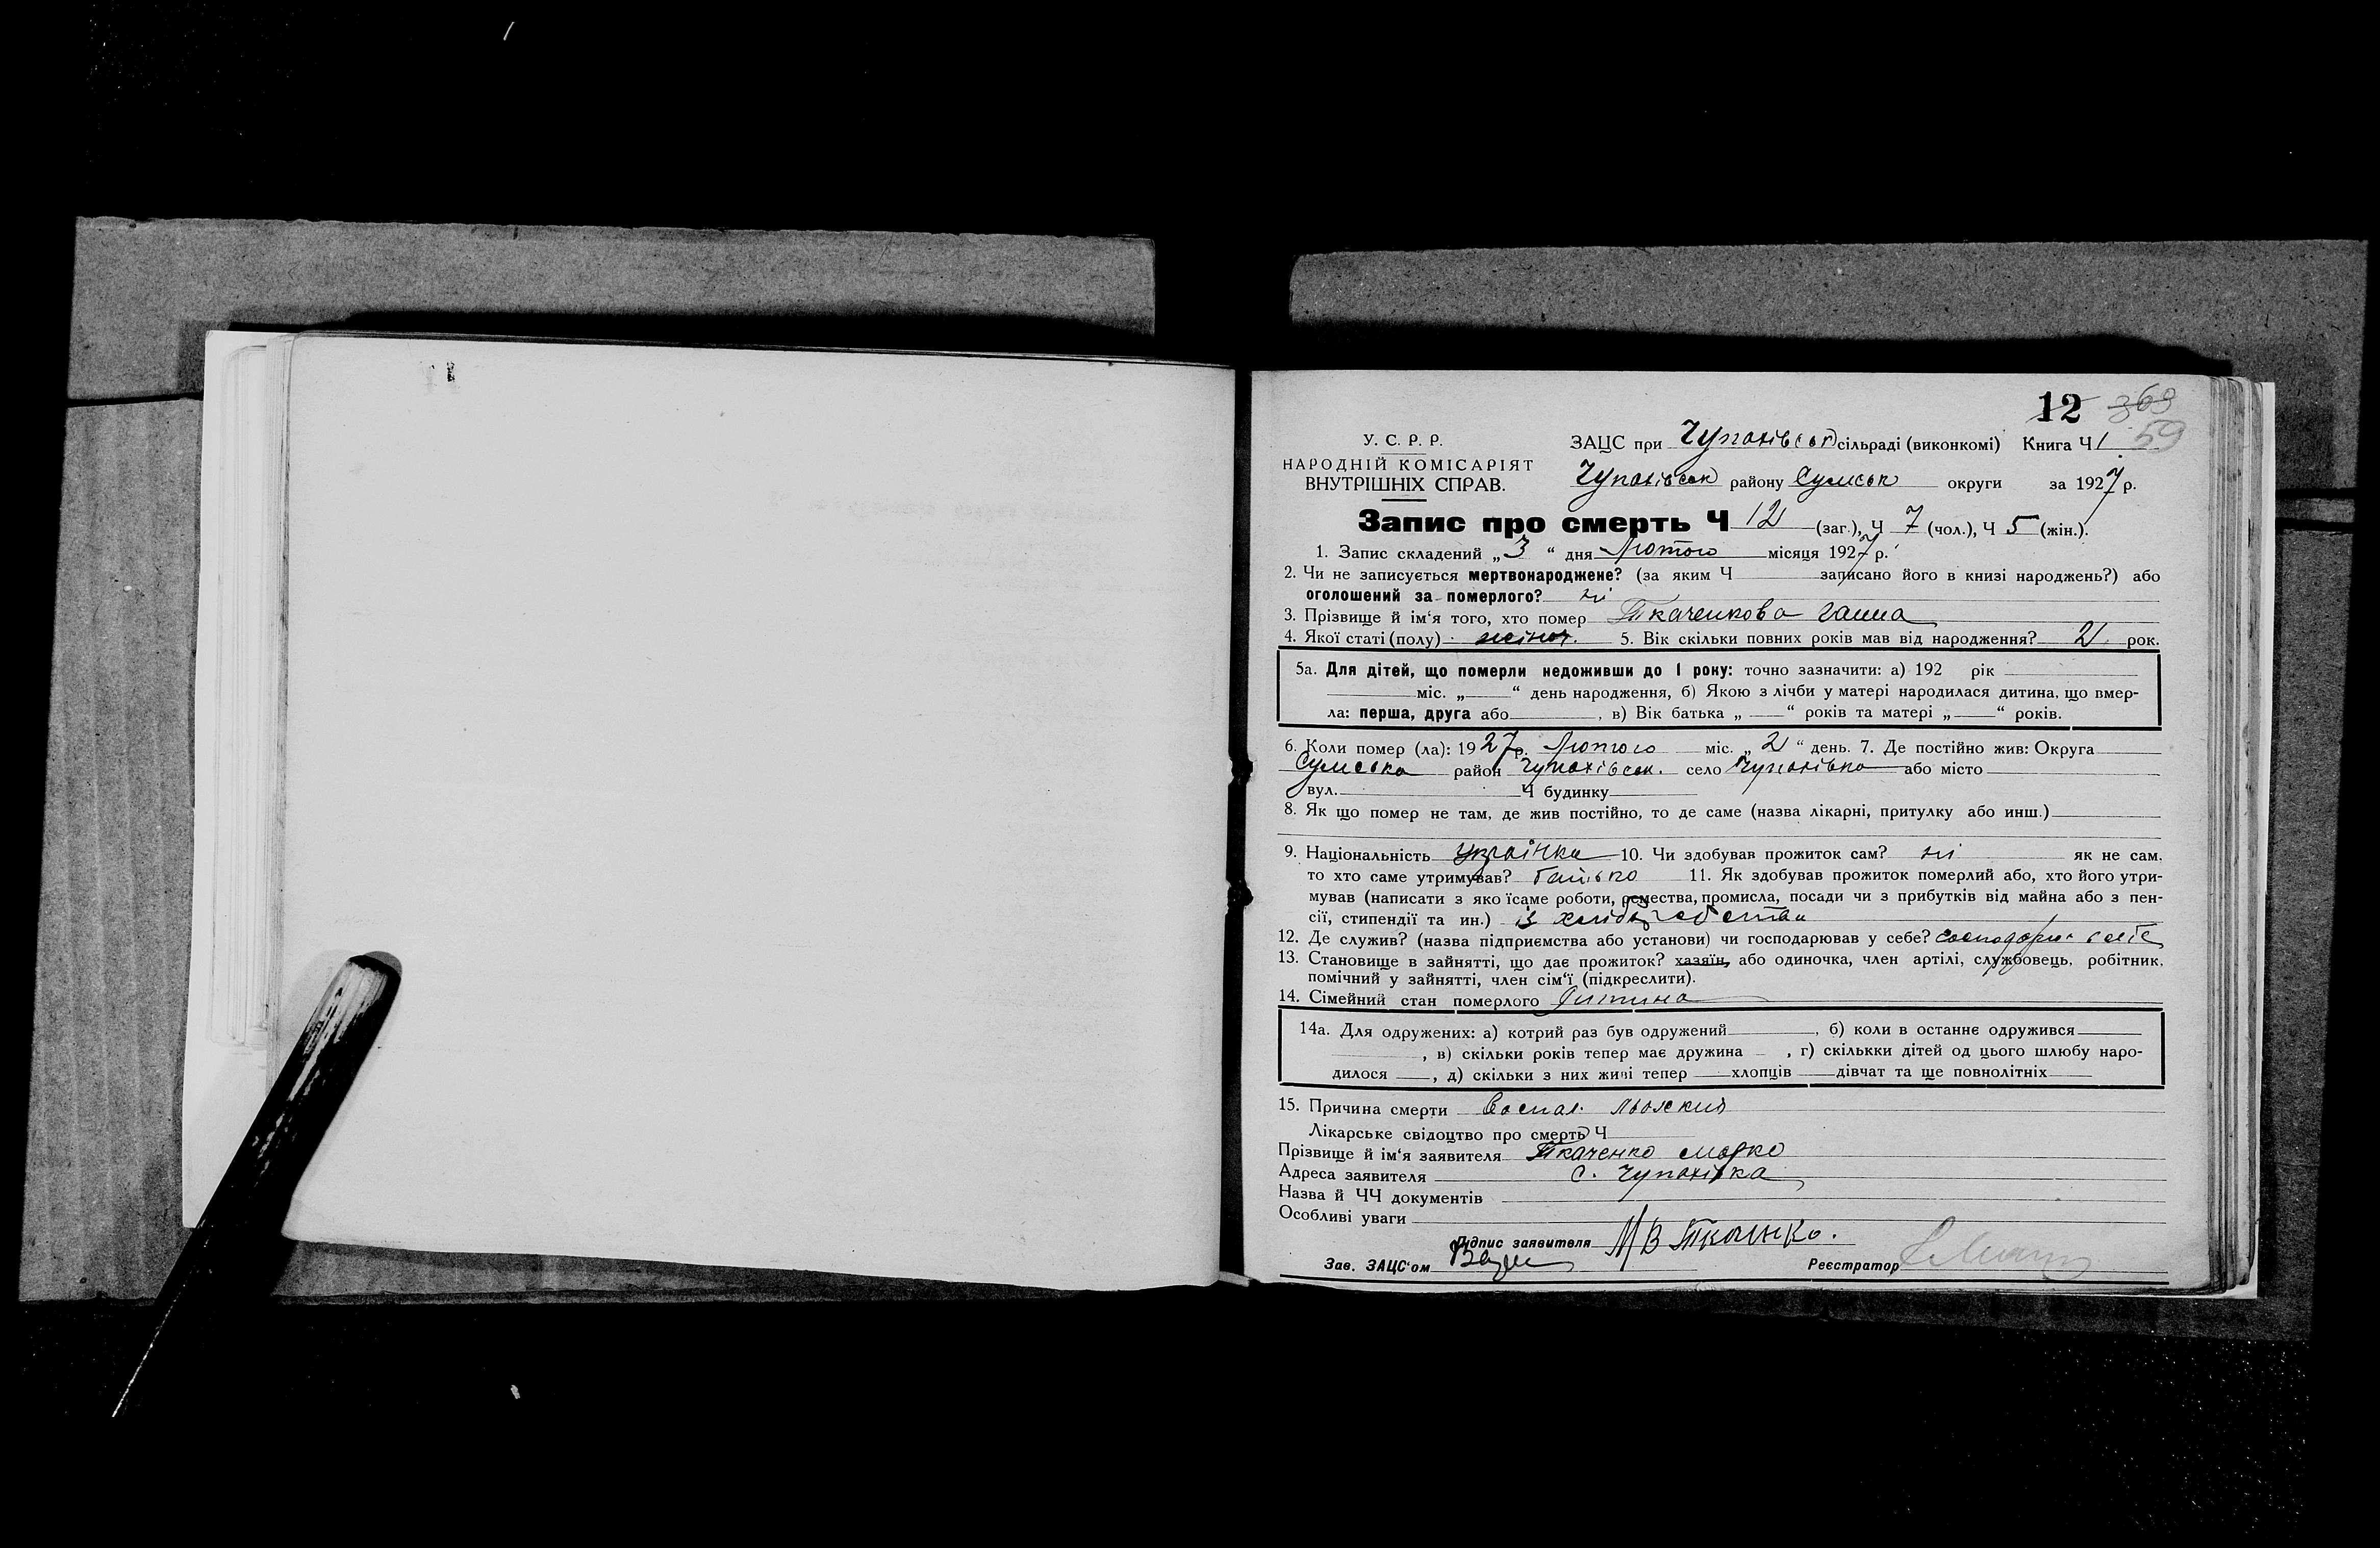 12 369
59
У. С. Р. Р.
НАРОДНІЙ КОМІСАРІЯТ
ВНУТРІШНІХ СПРАВ.
ЗАЦС при Чупахівськ сільраді (виконкомі) Книга Ч 1
Чупахівськ району Сумськ округи за 1927 р.
Запис про смерть Ч 12 (заг.), Ч 7 (чол.), Ч 5 (жін.).
1. Запис складений „3“ дня Лютого місяця 1927 р.
2. Чи не записується мертвонароджене? (за яким Ч записано його в книзі народжень?) або
оголошений за померлого? ні
3. Прізвище й ім'я того, хто помер Ткаченкова Ганна
4. Якої статі (полу) жіноч. 5. Вік скільки повних років мав від народження? 2 рок.
5а. Для дітей, що померли недоживши до 1 року: точно зазначити: а) 192 рік
міс. „ “ день народження, б) Якою з лічби у матері народилася дитина, що вмер-
ла: перша, друга або , в) Вік батька „ “ років та матері „ “ років.
6. Коли помер (ла): 1927 р. Лютого міс. „2“ день. 7. Де постійно жив: Округа
Сумська район Чупахівськ. село Чупахівка або місто
вул. Ч будинку
8. Як що помер не там, де жив постійно, то де саме (назва лікарні, притулку або инш.)
9. Національність українка 10. Чи здобував прожиток сам? ні як не сам,
то хто саме утримував? батько 11. Як здобував прожиток померлий або, хто його утри-
мував (написати з яко їсаме роботи, ремества, промисла, посади чи з прибутків від майна або з пен-
сії, стипендії та ин.) із
12. Де служив? (назва підприємства або установи) чи господарював у себе?
13. Становище в зайнятті, що дає прожиток? хазяїн, або одиночка, член артілі, службовець, робітник,
помічний у зайнятті, член сім'ї (підкреслити).
14. Сімейний стан померлого Дитина
14а. Для одружених: а) котрий раз був одружений , б) коли в останнє одружився
, в) скільки років тепер має дружина , г) скількки дітей од цього шлюбу наро-
дилося , д) скільки з них живі тепер хлопців дівчат та ще повнолітніх
15. Причина смерти Воспал.
Лікарське свідоцтво про смерть Ч
Прізвище й ім'я заявителя Ткаченко Марко
Адреса заявителя С. Чупахівка
Назва й ЧЧ документів
Особливі уваги
Підпис заявителя М В Ткаченко.
Зав. ЗАЦС'ом Реєстратор